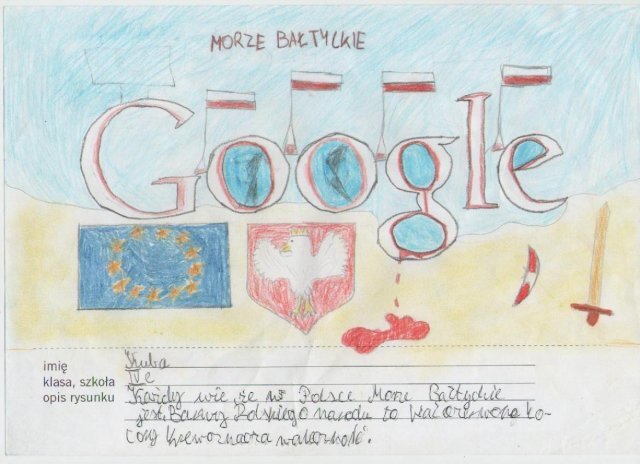 MORZE BAŁTYCKIE
Google
imię Kuba
klasa, szkoła Ve
opis rysunku Każdy wie że w Polsce Morze Bałtyckie
jest. Barwy Polskiego narodu to
krew oznacza waleczność.